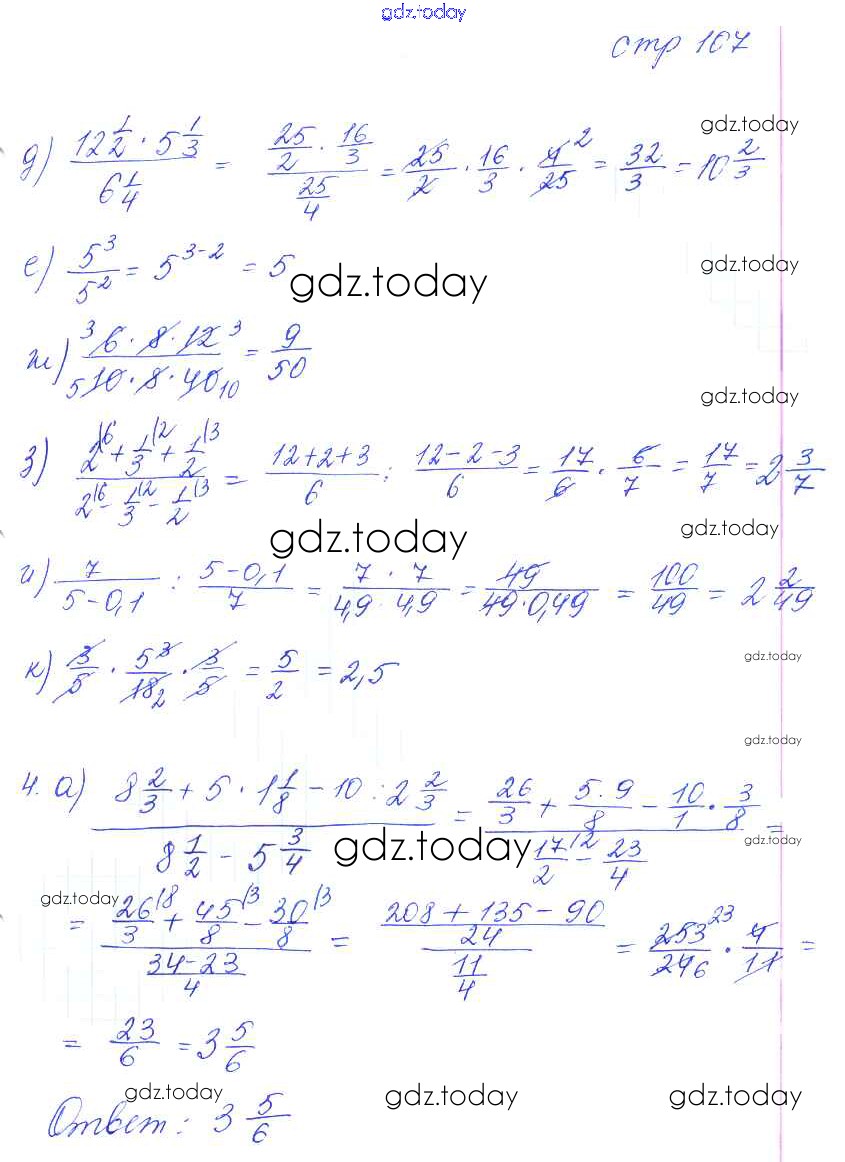 gdz.today
стр 167
gdz.today
д) (12 1/2 · 5 1/3)/(6 1/4) = (25/2 · 16/3)/(25/4) = 25/2 · 16/3 · 4/25 2 = 32/3 = 10 2/3
е) 5³/5² = 5³⁻² = 5
gdz.today gdz.today
ж) (3 6 · 8 · 12 3)/(5 10 · 8 · 40 10) = 9/50
gdz.today
з) (2|6 + 1/3|2 + 1/2|3)/(2|6 - 1/3|2 - 1/2|3) = (12+2+3)/6 : (12-2-3)/6 = 17/6 · 6/7 = 17/7 = 2 3/7
gdz.today gdz.today
и) 7/(5-0,1) : (5-0,1)/7 = (7 · 7)/(4,9 · 4,9) = 49/(49·0,49) = 100/49 = 2 2/49
gdz.today
к) 3/5 · 5³/(18 2) · 3/5 = 5/2 = 2,5
gdz.today
4. а) (8 2/3 + 5 · 1 1/8 - 10 : 2 2/3)/(8 1/2 - 5 3/4) = (26/3 + (5·9)/8 - 10/1 · 3/8)/(17/2|2 - 23/4) =
gdz.today gdz.today
gdz.today
= (26/3|8 + 45/8|3 - 30/8|3)/((34-23)/4) = ((208+135-90)/24)/(11/4) = 253 23/24 6 · 4/11 =
= 23/6 = 3 5/6
gdz.today gdz.today gdz.today
Ответ: 3 5/6